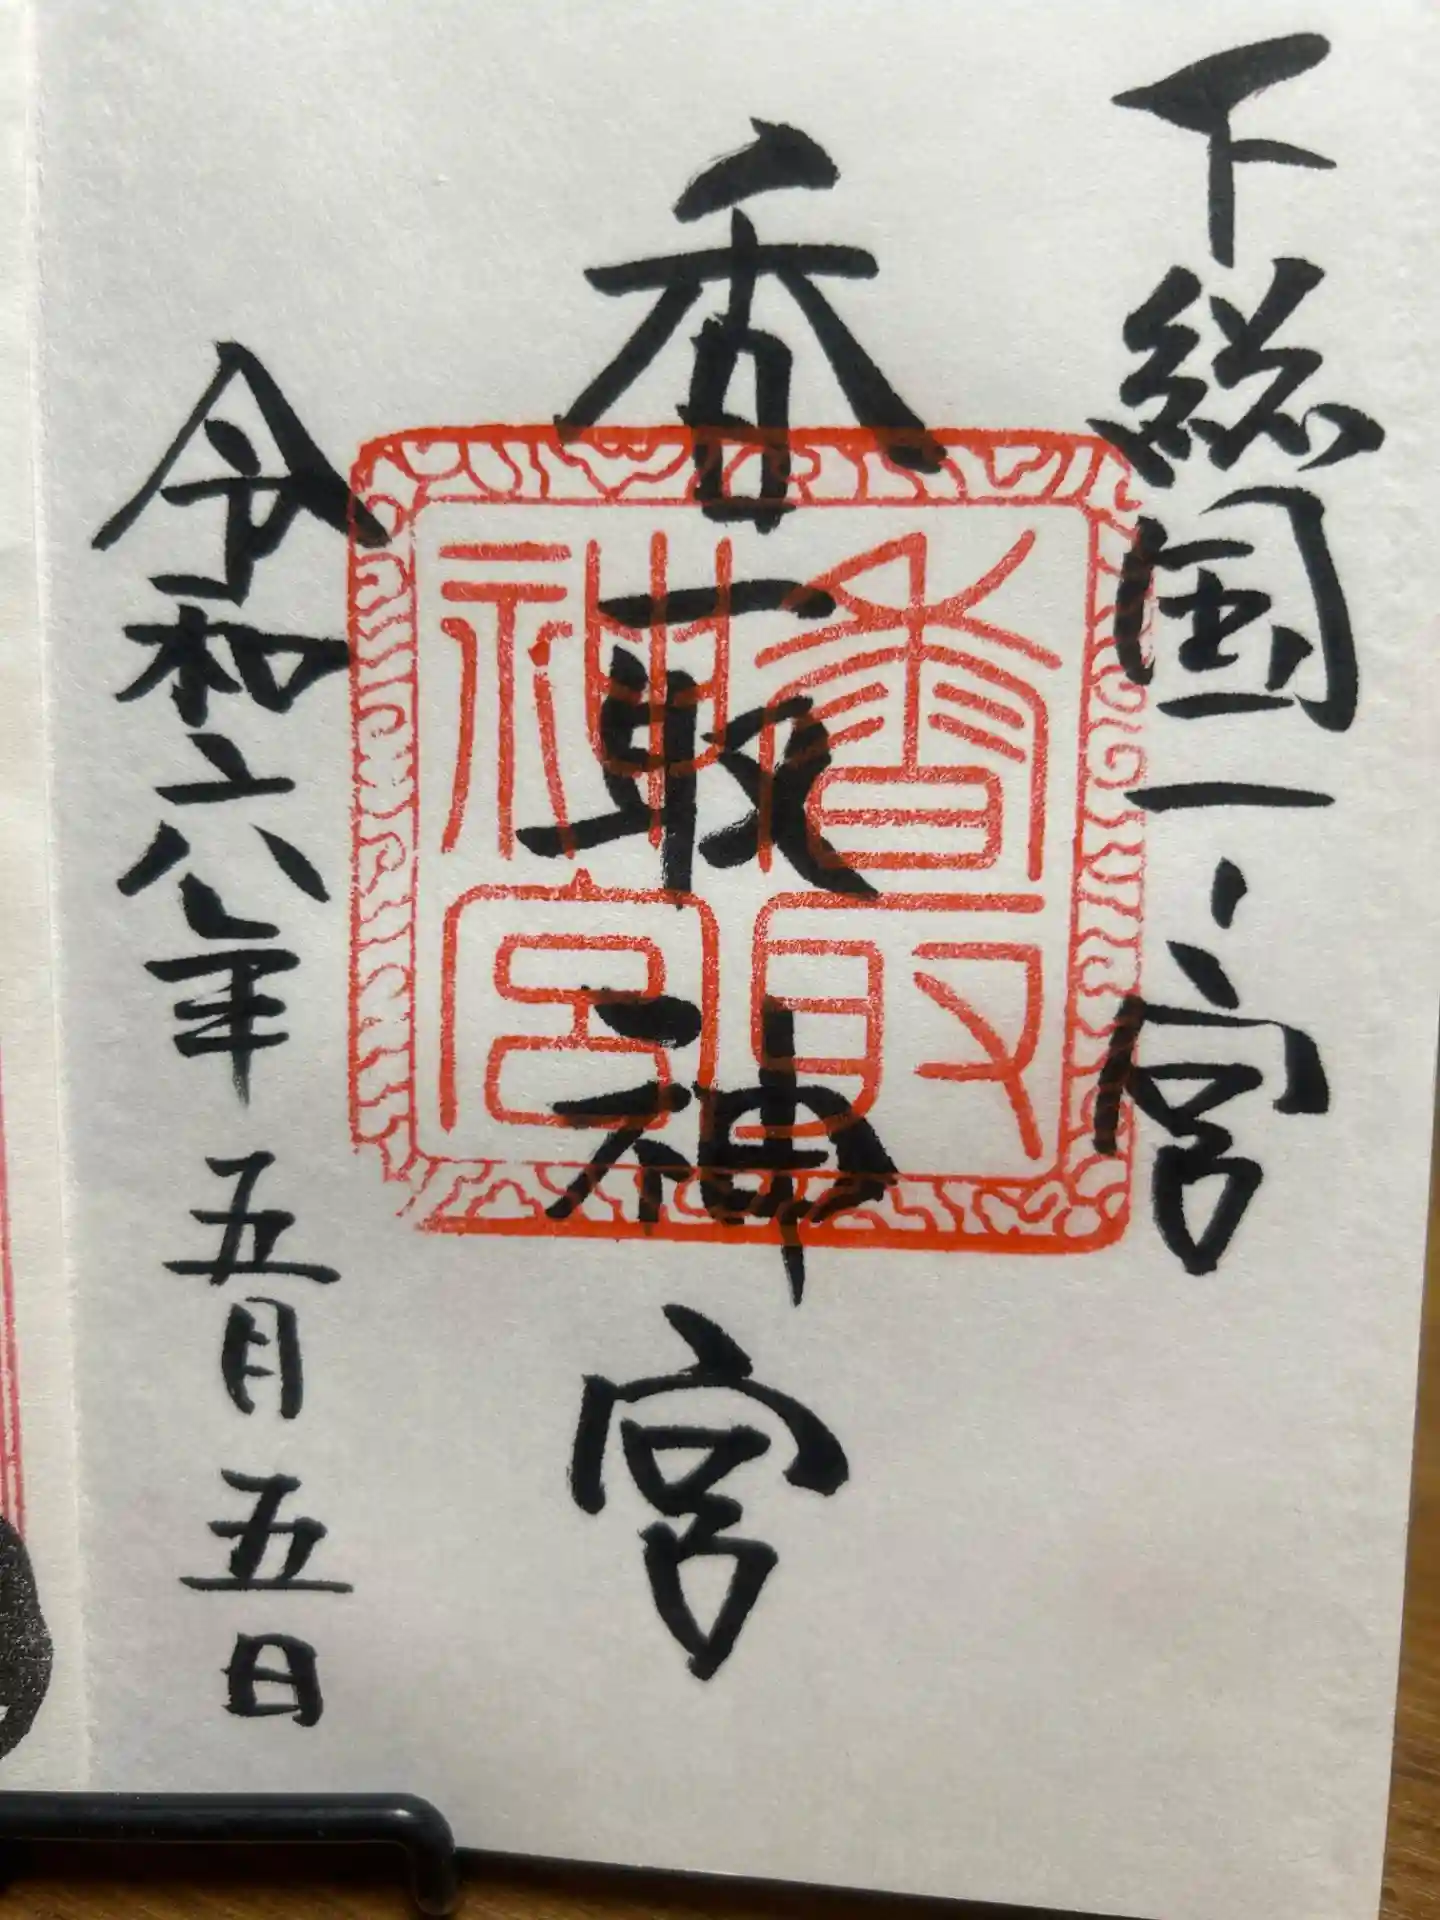 下総国一之宮
香取神宮
香取神宮
令和六年五月五日